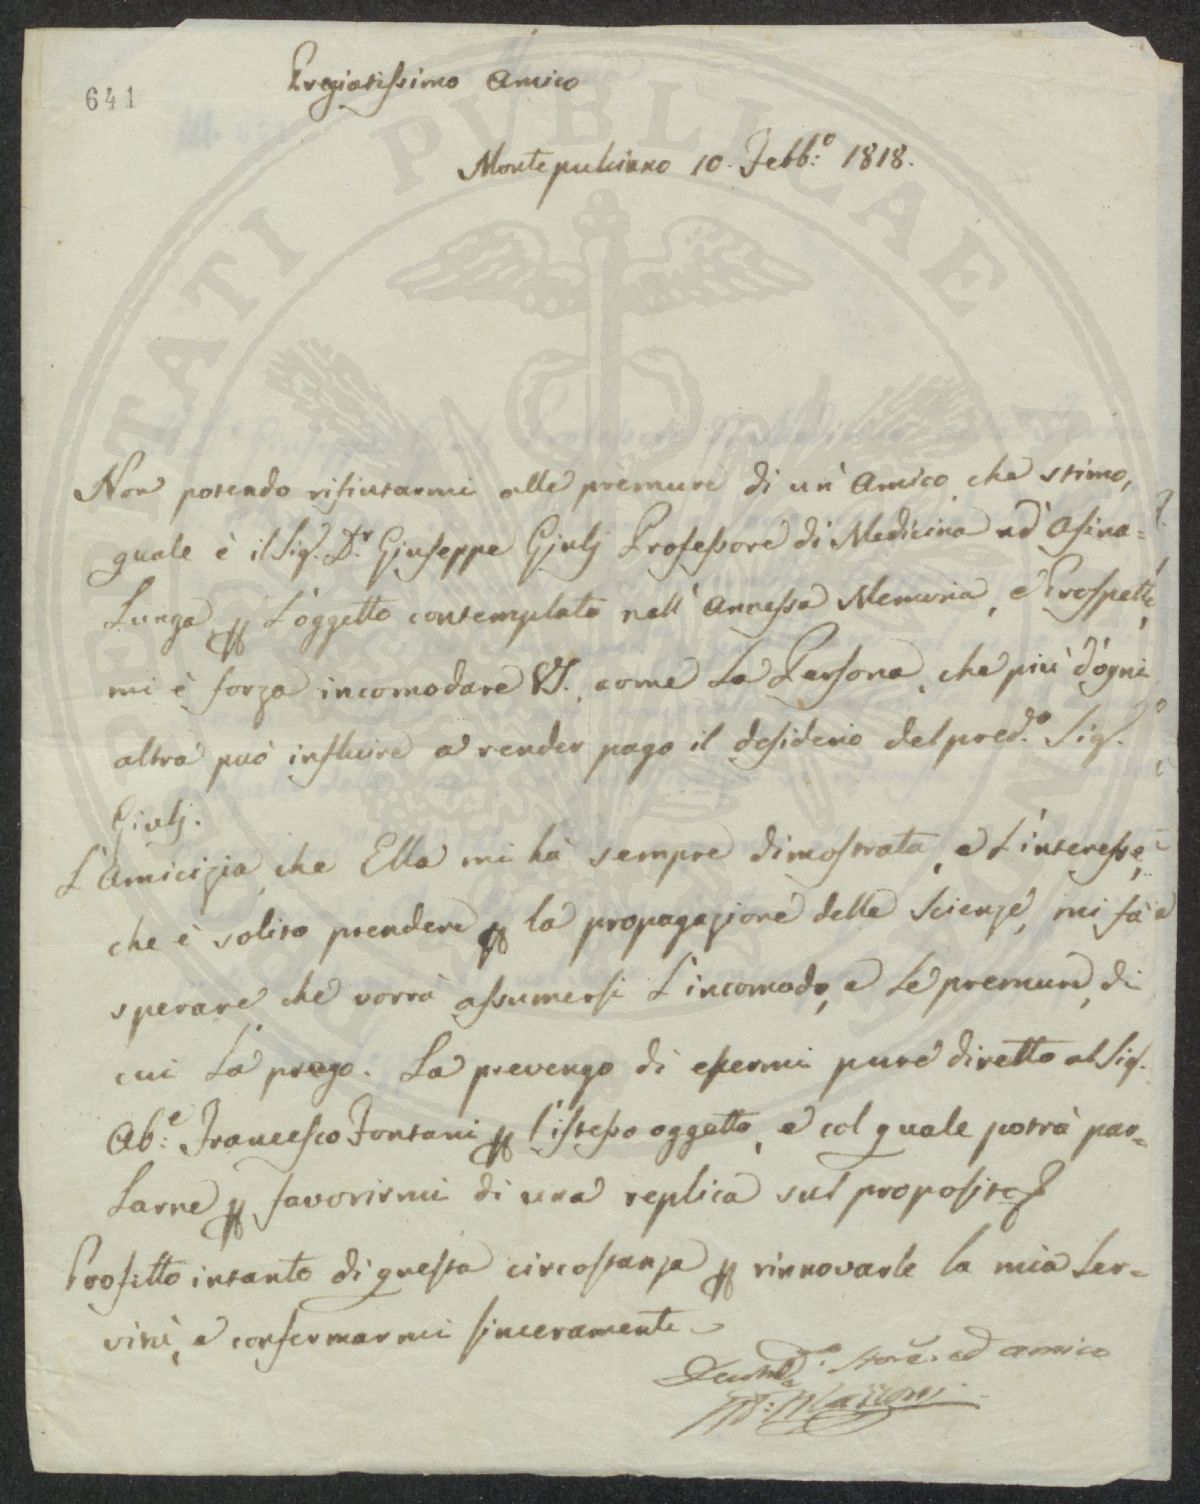 641
Pregiatissimo Amico
Montepulciano 10. Febb:o 1818.
PROSPERITATI PUBLICAE
Non potendo rifiutarmi alle premure di un' Amico, che stimo,
quale è il Sig. D.r Giuseppe Giulj Professore di Medicina ad Asina=
Lunga p L'oggetto contemplato nell' annessa Memoria, e Prospetto,
mi è forza incomodare VS., come La Persona, che più d'ogni
altra può influire a render pago il desiderio del pred.o Sig.
Giulj.
L'Amicizia, che Ella mi hà sempre dimostrata, e L'interesse,
che è solito prendere p la propagazione delle Scienze, mi fà
sperare che vorrà assumersi L'incomodo, e Le premure, di
cui La prego. La prevengo di essermi pure diretto al Sig.
Ab:e Francesco Fontani p l'istesso oggetto, e col quale potrà par=
Larne p favorirmi di una replica sul proposito
Profitto intanto di questa circostanza p rinnovarle la mia Ser=
vitù, e confermarmi sinceramente
ed amico